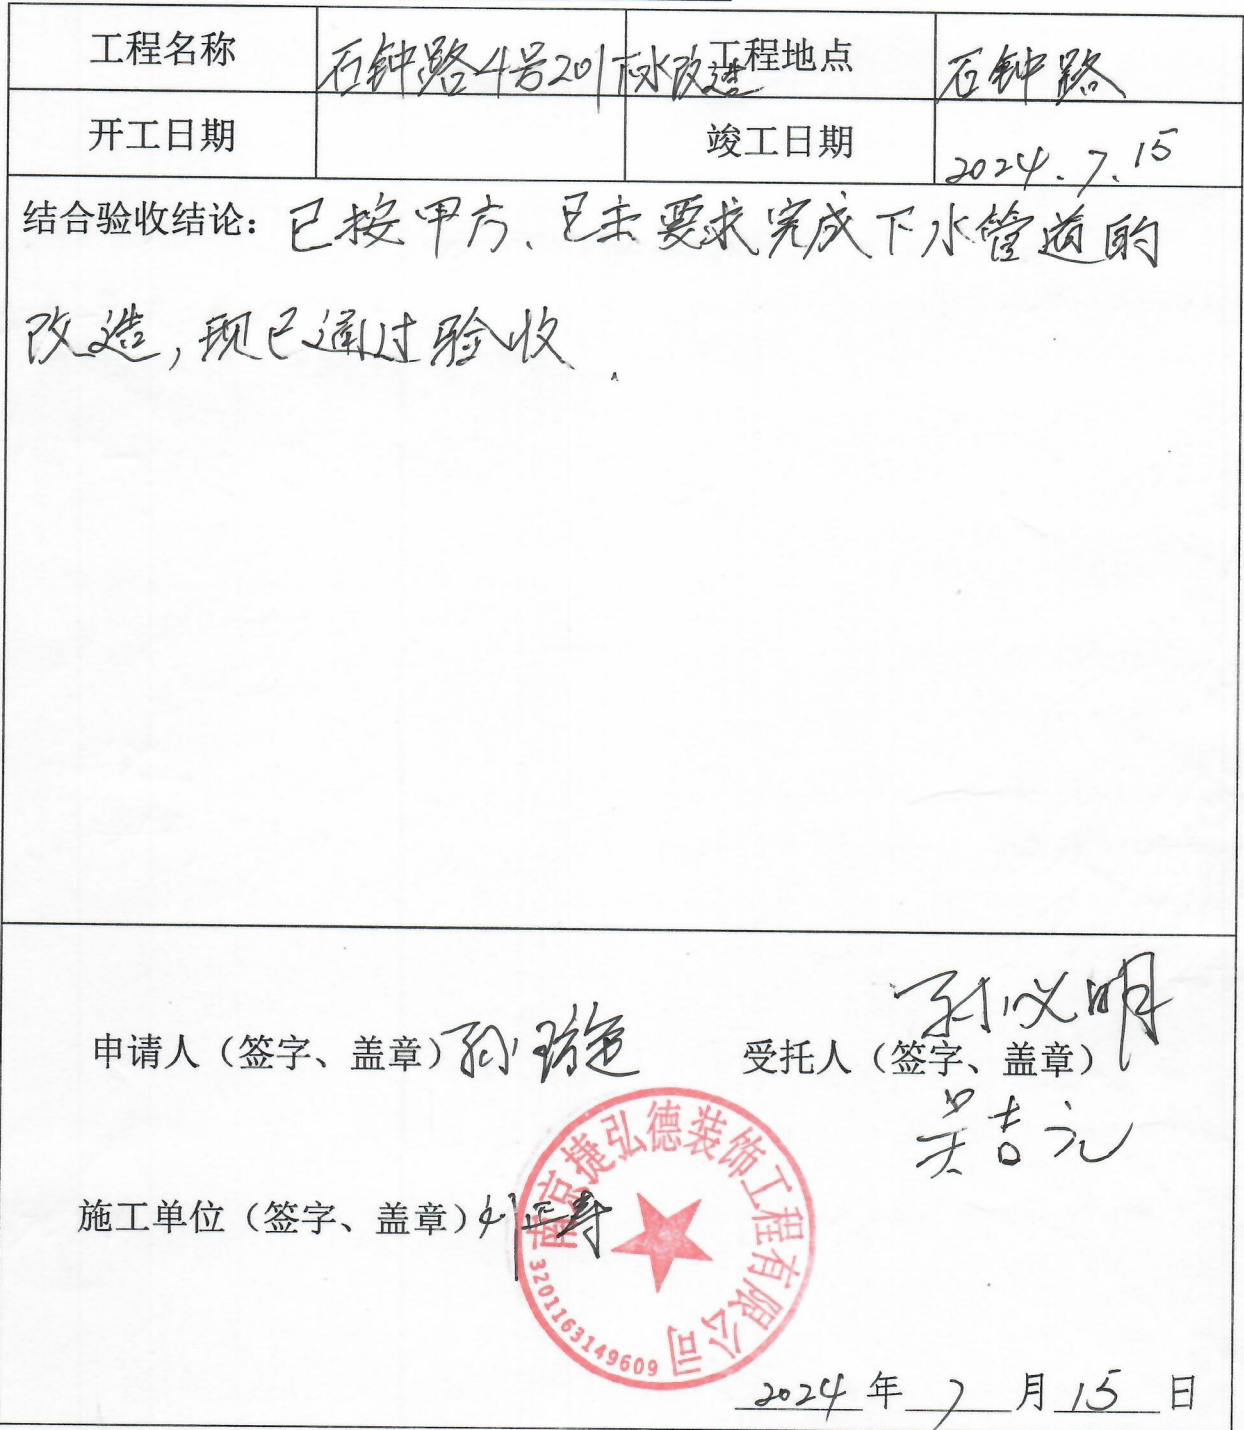 工程名称 石钟路4号201下水改造 工程地点 石钟路
开工日期 竣工日期 2024.7.15
结合验收结论：已按甲方、已去要求完成下水管道的
改造,现已通过验收.
孙义明
申请人（签字、盖章）孙璇 受托人（签字、盖章）
吴吉元
施工单位（签字、盖章）
南京捷弘德装饰工程有限公司
3201163149609
2024年7月15日